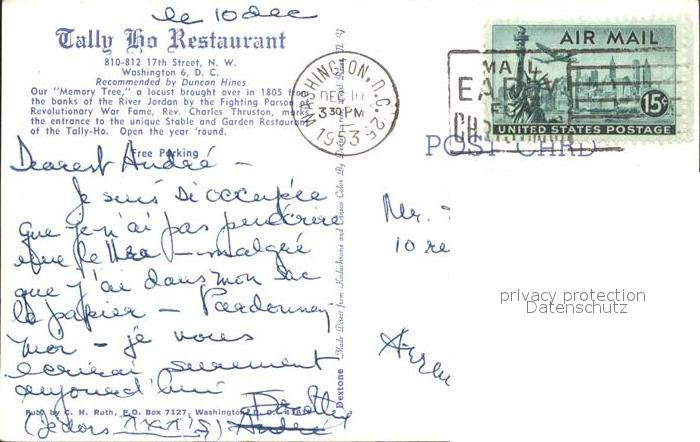 le 10 dec
Tally Ho Restaurant
810-812 17th Street, N. W.
Washington 6, D. C.
Recommended by Duncan Hines
Our "Memory Tree," a locust brought over in 1805 from
the banks of the River Jordan by the Fighting Parson of
Revolutionary War Fame, Rev. Charles Thruston, marks
the entrance to the unique Stable and Garden Restaurant
of the Tally-Ho. Open the year 'round.
Free Parking
Dearest André -
Je suis si occupée
que je n'ai pas pu écrire
une lettre - malgré
que j'ai dans mon sac
le papier - Pardonnez
moi - je vous
écrirai surement
aujourd'hui Dorothy
(j'adors
André
Pub. by C. H. Ruth, P.O. Box 7127, Washington, D. C.
Dextone
Made Direct from Kodachrome and Ansco Color By
WASHINGTON, D.C. 25
DEC 10
3 30 PM
1953
MAIL
EARLY
FOR
CHRISTMAS
AIR MAIL
15¢
UNITED STATES POSTAGE
POST CARD
Mr.
10 re
privacy protection
Datenschutz